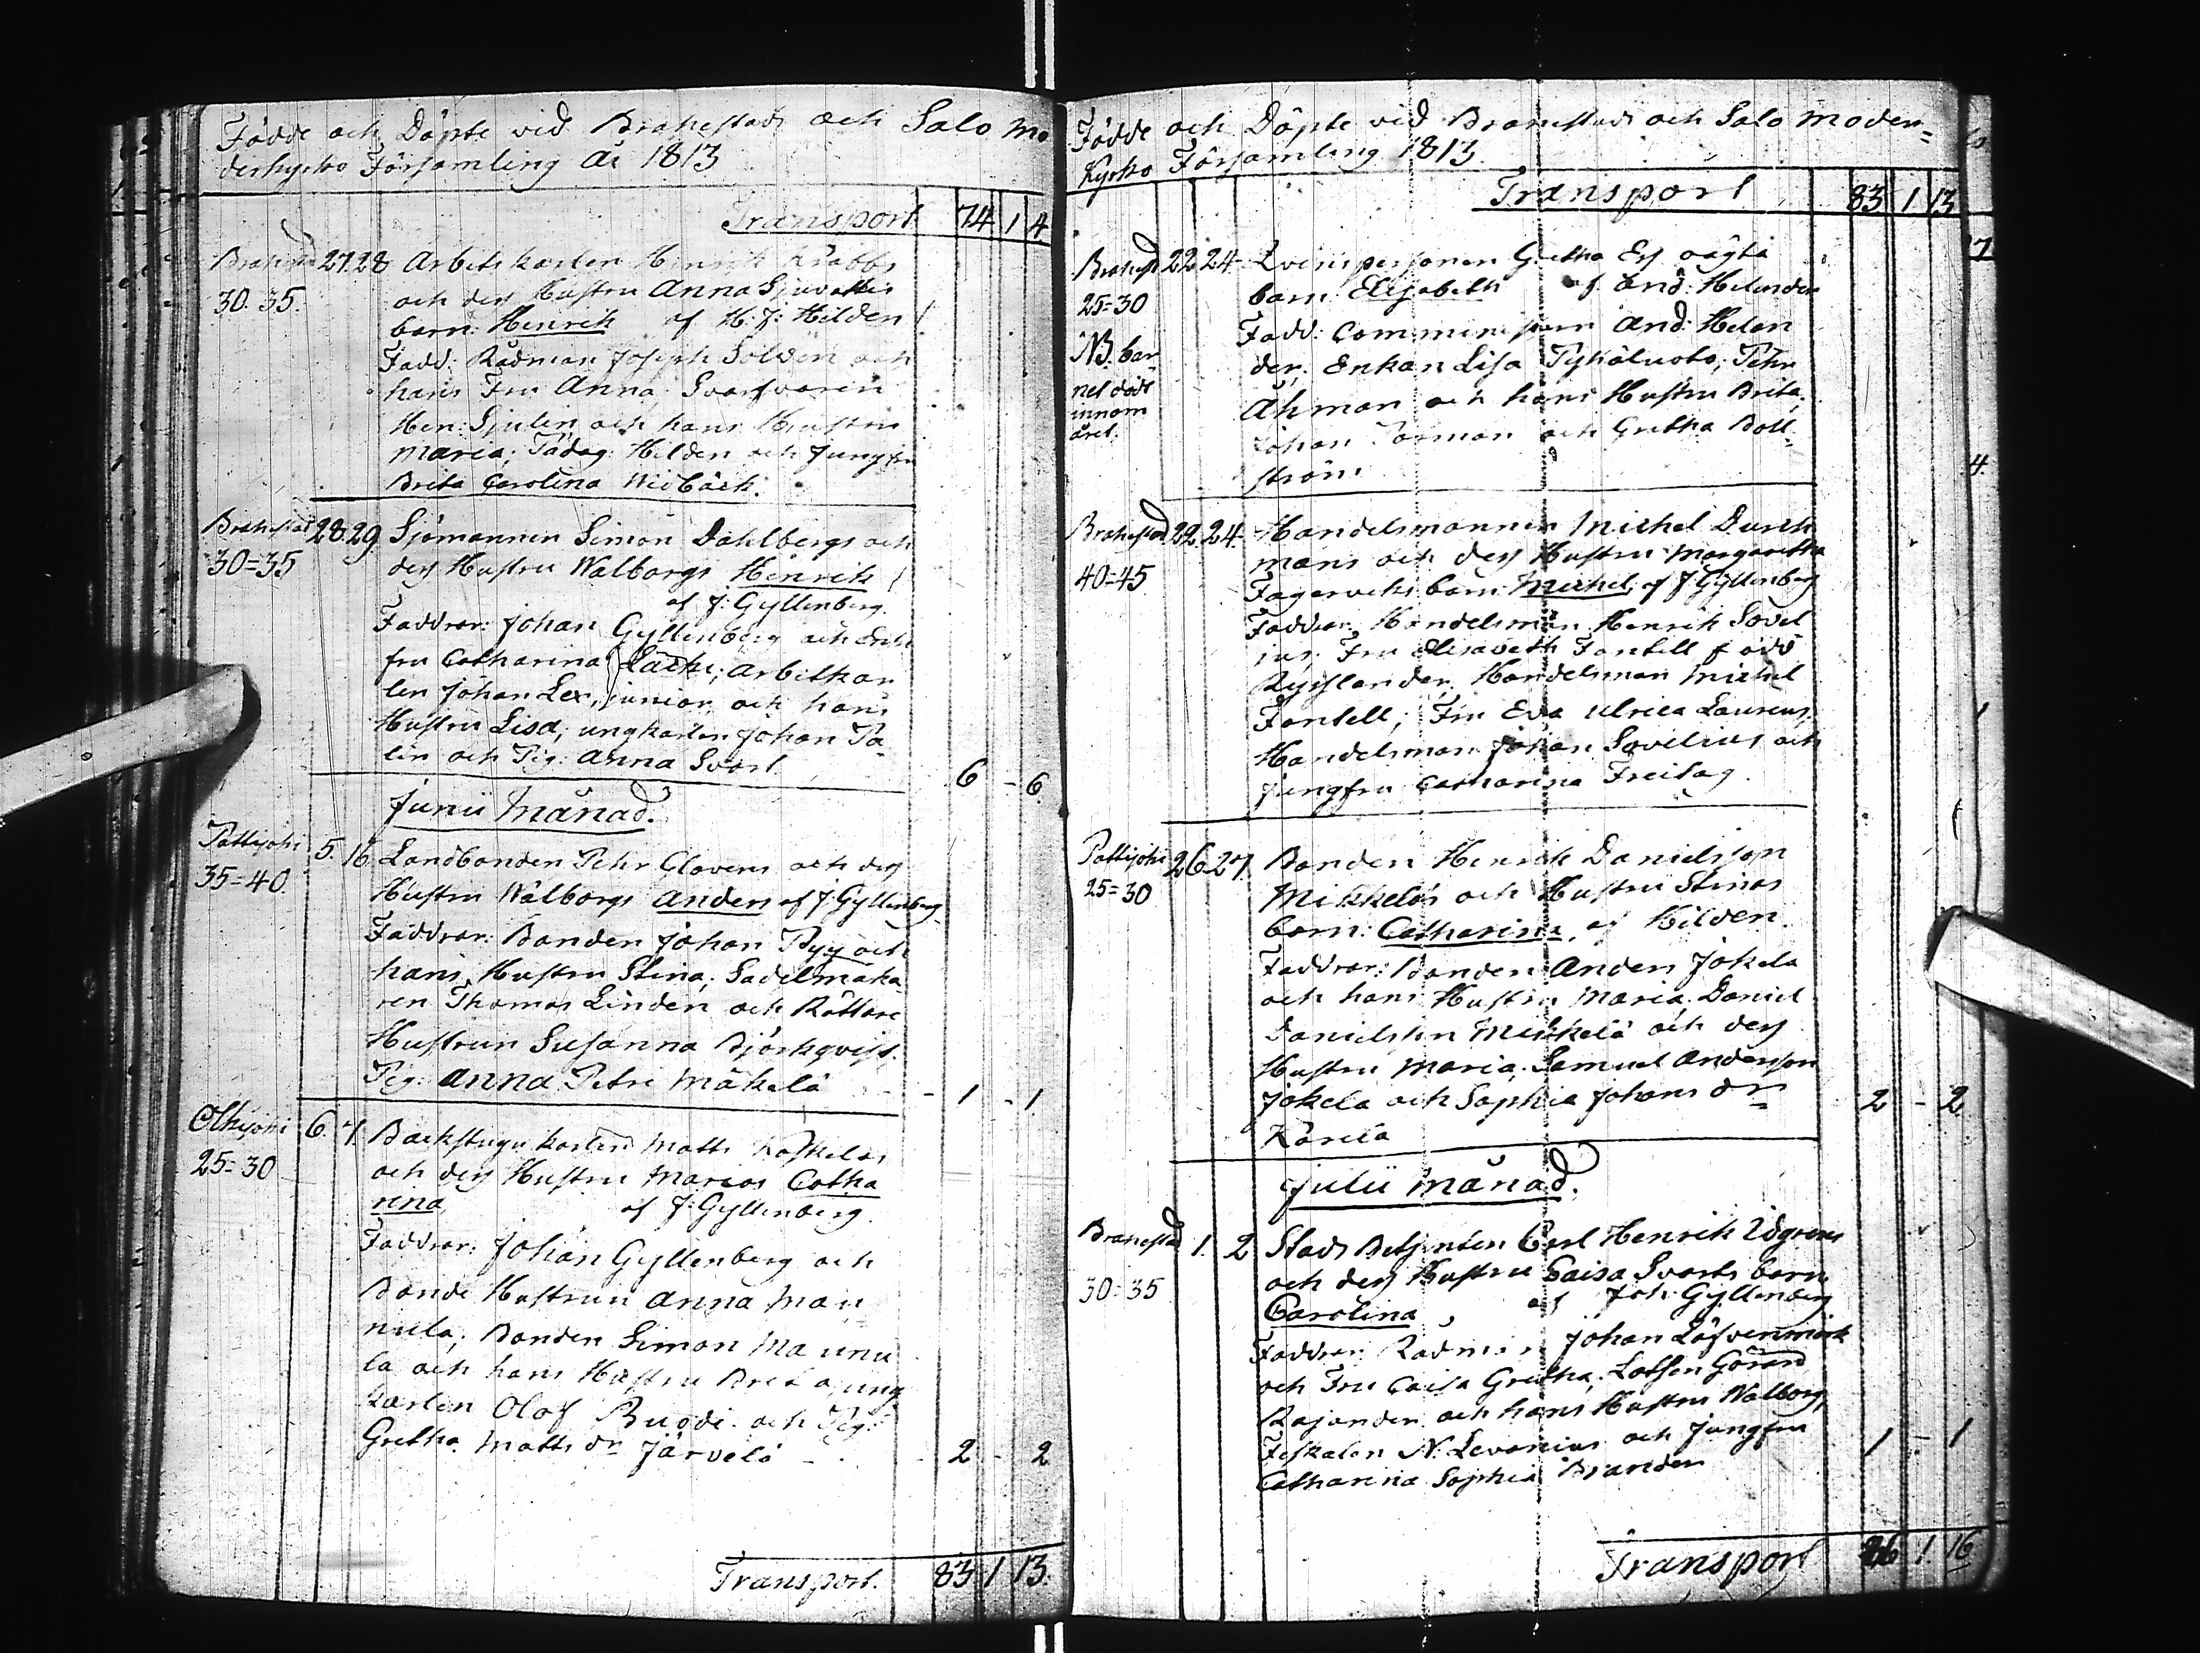 Födde och Döpte vid Brahestads och Salo Mo
derkyrko Församling År 1813
Transport 74 1 4.
Brahestad 27. 28 Arbets karlen Henrik Krabbs
30. 35. och dess Hustru Anna
barn: Henrik af H: J: Hilden
Fadd: Rådman Joseph Solden och
hans Fru Anna, Svarfvaren
Hen: Sjulin och hans Hustru
Maria; Hilden och Jungfru
Brita Carolina Widbäck.
Brahestad 28. 29. Sjömannen Simon Dahlbergs och
30=35 dess Hustru Walborgs Henrik
af J: Gyllenberg.
Faddrar: Johan Gyllenberg och
fru Catharina Lackt; Arbetkar
len Johan Lex, junior och hans
Hustru Lisa; ungkarlen Johan Pa
lin och Pig: Anna Svart 6 - 6.
Junii Månad.
Pattijoki 5. 16. Landbonden Pehr Clavens och dess
35=40. Hustru Walborgs Anders af J: Gyllenberg
Faddrar: Bonden Johan Pyy och
hans Hustru Stina; Sadelmaka
ren Thomas Linden och Rättare
Hustrun Susanna Björkqvist.
Pig: Anna Petri Mäkelä - 1 - 1
Olkijoki 6. 7. Backstugu karlen Matts Koskelas
25=30 och dess Hustru Marias Catha
rina, af J: Gyllenberg.
Faddrar: Johan Gyllenberg och
Bonde Hustrun Anna Man
nila; Bonden Simon Maunu
la och hans Hustru Brita, ung
karlen Olof Ruodi och Pig:
Gretha Matts dr Järvelä - 2 - 2
Transport. 83 1 13.
Födde och Döpte vid Brahestads och Salo Moder=
Kyrko Församling 1813.
Transport 83 1 13
Brahest 22. 24. Qvinspersonen Gretha oägta
25=30 barn: Elisabeth af And: Helander
NB. bar Fadd: Commin And: Helan
net dödt der. Enkan Lisa Pykäluoto; Pehr
innom Åhman och hans Hustru Brita,
året. Johan och Gretha Boll
ström
Brahestad 22. 24. Handelsmannen Michel Durch
40=45 mans och dess Hustru Margaretha
Fagerviks barn: Michel, af J: Gyllenberg
Faddrar: Handelsman Henrik Sovel
ius, Fru Elisabeth Fantell född
Rysslander, Handelsman Michel
Fantell; Fru Eva Ulrica Laurens
Handelsman Johan Sovelius och
Jungfru Catharina Freitag.
Pattijoki 26. 27. Bonden Henrik Danielsson
25=30 Mikkeläs och Hustru Stinas
barn: Catharina, af Hilden.
Faddrar: Bonden Anders Jokela
och hans Hustru Maria. Daniel
Danielssn Mikkelä och dess
Hustru Maria, Samuel Andersson
Jokela och Sophia Johans dr 2 - 2
Karela
Julii Månad.
Brahestad 1. 2 Stads Betjenten Carl Henrik Idgrens
30=35 och dess Hustru Caisa Svarts barn
Carolina, af Joh: Gyllenberg
Faddrar: Rådman Johan Löfvenmark
och Fru Caisa Gretha, Lotsen Göran
Rajander och hans Hustru Walborg,
Fiskalen N. Levonius och Jungfru 1 - 1
Catharina Sophia Brander
Transport 86 1 16